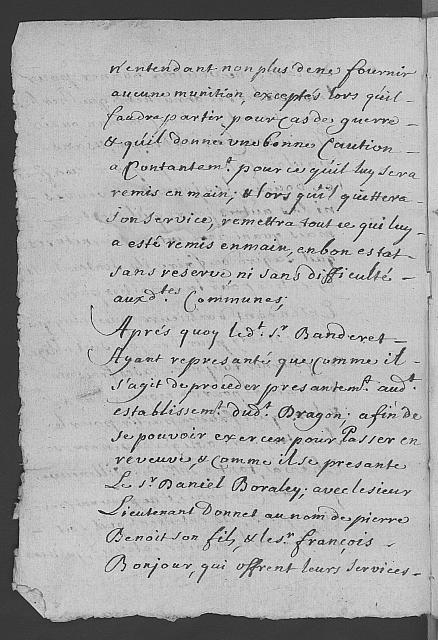 n'entendant non plus de ne fournir
aucune munition, exceptés lors qu'il
faudra partir pour cas de guerre
& qu'il donne une bonne Caution
a Contantem.t pour ce qu'il luy sera
remis en main; & lors qu'il quittera
son service, remettra tout ce qui luy
a esté remis en main, en bon estat
sans reserve ni sans difficulté
auxd.tes Communes;
Aprés quoy led.t s.r Banderet
Ayant represanté que comme il
s'agit de proceder presantem.t aud.t
establissem.t dud.t Dragon; afin de
se pouvoir exercer pour Passer en
reveuë, & comme il se presante
Le s.r Daniel Boraley; avec le sieur
Lieutenant Donnet au nom de pierre
Benoit son fils, & le s.r françois
Bonjour, qui offrent leurs services